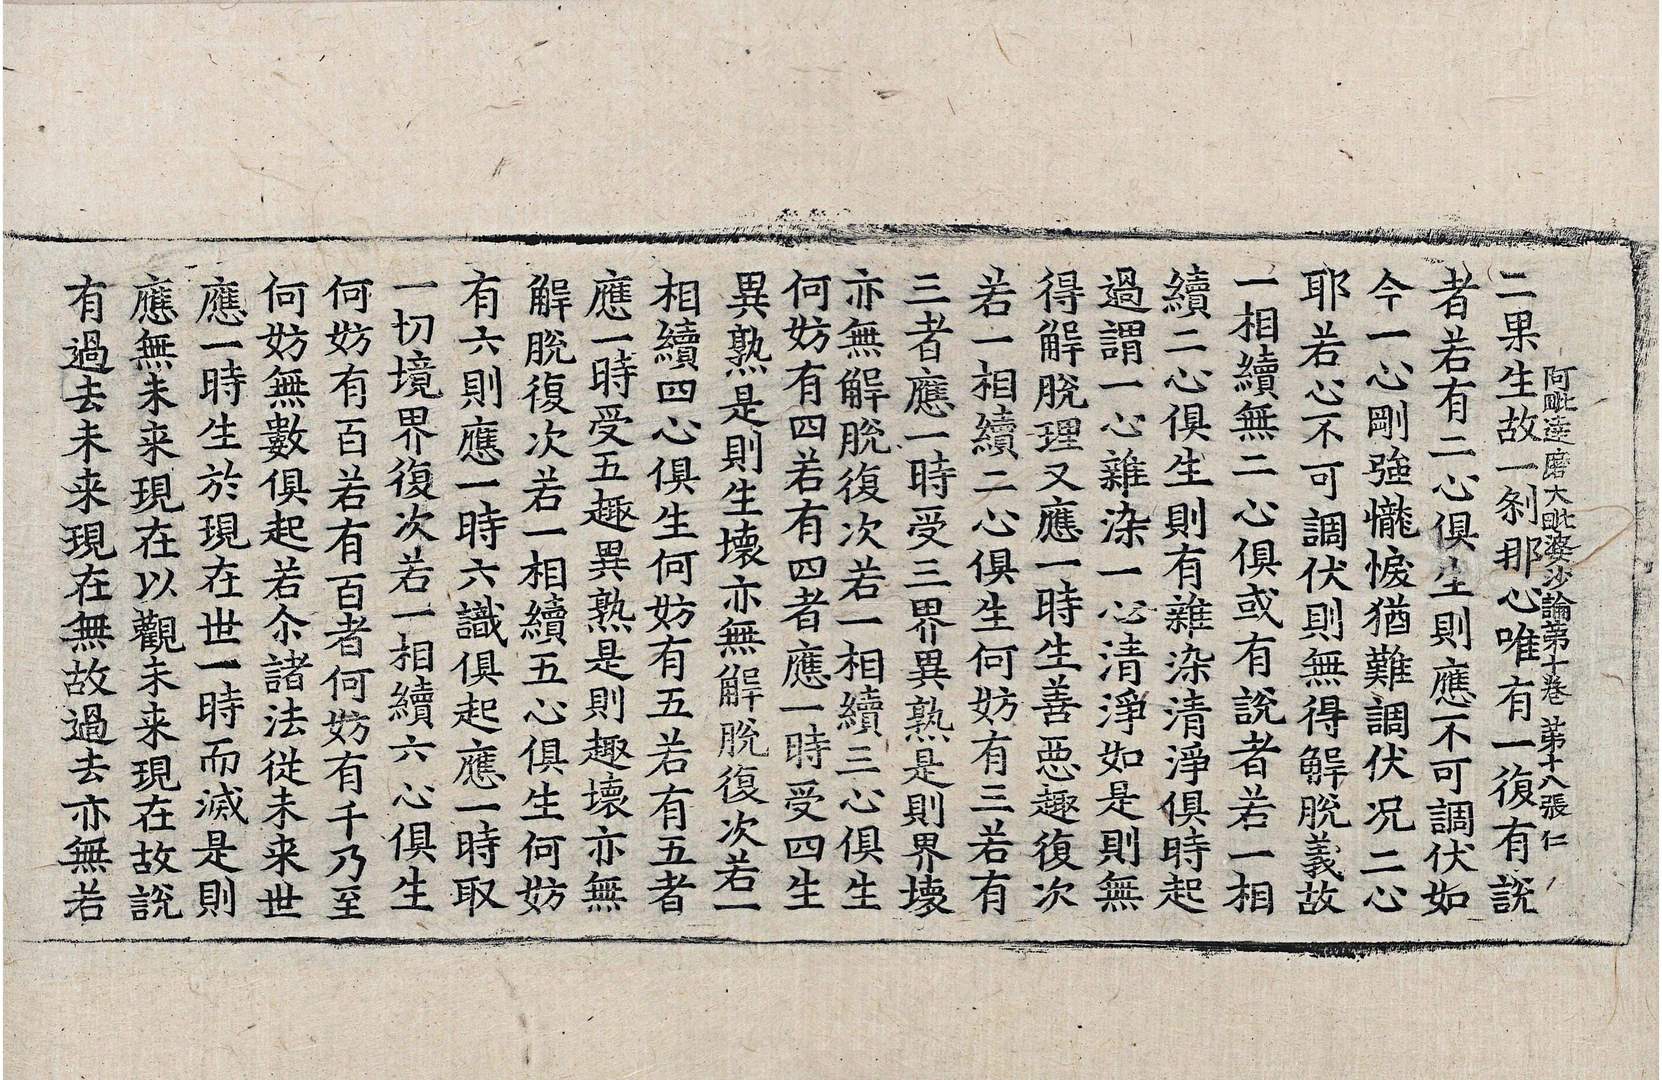 阿毗達磨大毗婆沙論第十卷 第十八張 仁
二果生故一剎那心唯有一復有說
者若有二心俱生則應不可調伏如
今一心剛強㦨悷猶難調伏况二心
耶若心不可調伏則無得解脫義故
一相續無二心俱或有說者若一相
續二心俱生則有雜染清淨俱時起
過謂一心雜染一心清淨如是則無
得解脫理又應一時生善惡趣復次
若一相續二心俱生何妨有三若有
三者應一時受三界異熟是則界壞
亦無解脫復次若一相續三心俱生
何妨有四若有四者應一時受四生
異熟是則生壞亦無解脫復次若一
相續四心俱生何妨有五若有五者
應一時受五趣異熟是則趣壞亦無
解脫復次若一相續五心俱生何妨
有六則應一時六識俱起應一時取
一切境界復次若一相續六心俱生
何妨有百若有百者何妨有千乃至
何妨無數俱起若尒諸法從未来世
應一時生於現在世一時而滅是則
應無未来現在以觀未来現在故說
有過去未来現在無故過去亦無若